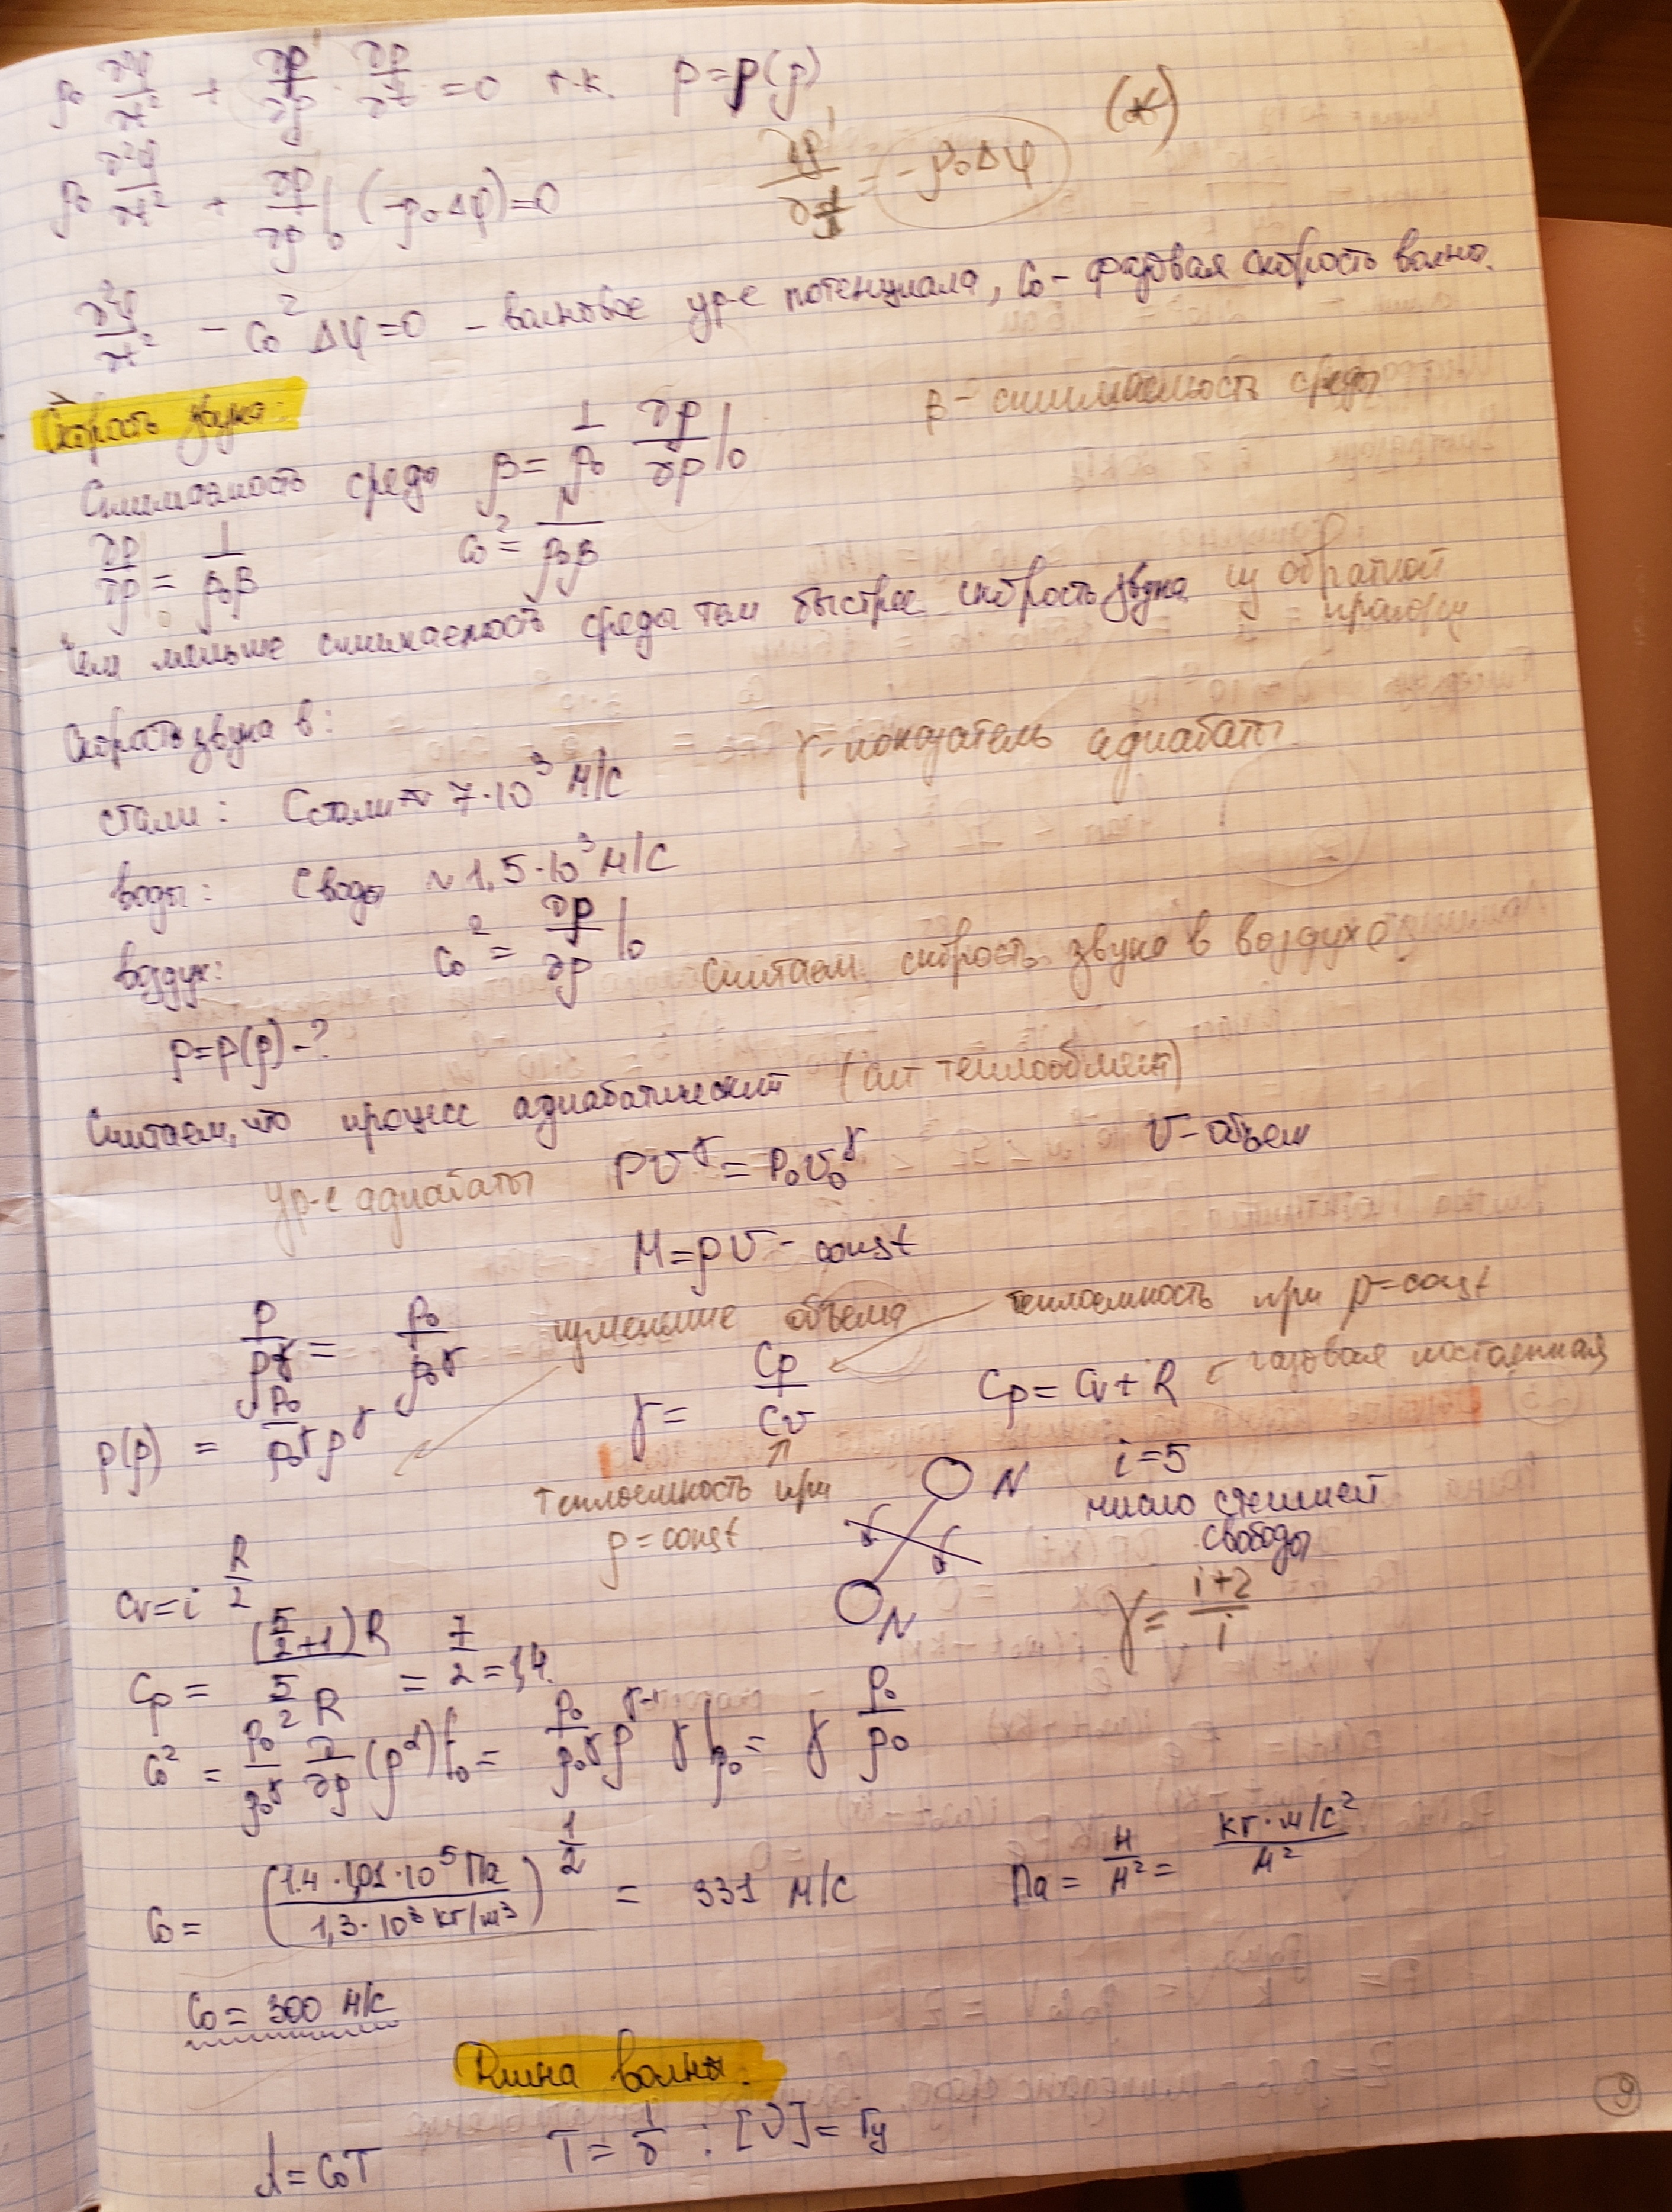 ρ₀ ∂²φ/∂t² + ∂p'/∂ρ · ∂ρ/∂t = 0 т.к. p=p(ρ)
(*)
ρ₀ ∂²φ/∂t² + ∂p/∂ρ|₀ (-ρ₀Δφ)=0 ∂ρ'/∂t = -ρ₀Δφ
∂²φ/∂t² - C₀² Δφ=0 - волновое ур-е потенциала, C₀ - фазовая скорость волны.
Скорость звука:
Сжимаемость среды β = 1/ρ₀ ∂ρ/∂p|₀ β - сжимаемость среды
∂p/∂ρ|₀ = 1/ρ₀β C₀² = 1/ρ₀β
Чем меньше сжимаемость среды тем быстрее скорость звука из обратной
пропорц
Скорость звука в:
γ - показатель адиабаты
стали: Cстали ~ 7·10³ м/с
воды: Cводы ~ 1,5·10³ м/с
воздух: C₀² = ∂p/∂ρ|₀ считаем скорость звука в воздухе
p=p(ρ)-?
Считаем, что процесс адиабатический (нет теплообмена)
ур-е адиабаты PV^γ = P₀V₀^γ V - объем
M=ρV - const
p/ρ^γ = p₀/ρ₀^γ объема теплоемкость при p=const
γ = Cp/Cv Cp = Cv + R - газовая постоянная
p(ρ) = p₀/ρ₀^γ ρ^γ
теплоемкость при
ρ=const
N i=5
число степеней
свободы
N
Cv = i R/2
γ = i+2/i
Cp = (5/2+1)R / 5/2 R = 7/2 = 1,4.
C₀² = p₀/ρ₀^γ ∂/∂ρ (ρ^γ)|₀ = p₀/ρ₀^γ ρ^γ-1 γ|ρ₀ = γ p₀/ρ₀
C₀ = (1.4 · 1,01·10⁵ Па / 1,3·10³ кг/м³)^1/2 = 331 м/с Па = Н/м² = кг·м/с²/м²
C₀ = 300 м/с
Длина волны:
λ = C₀T T = 1/ν : [ν] = Гц
9